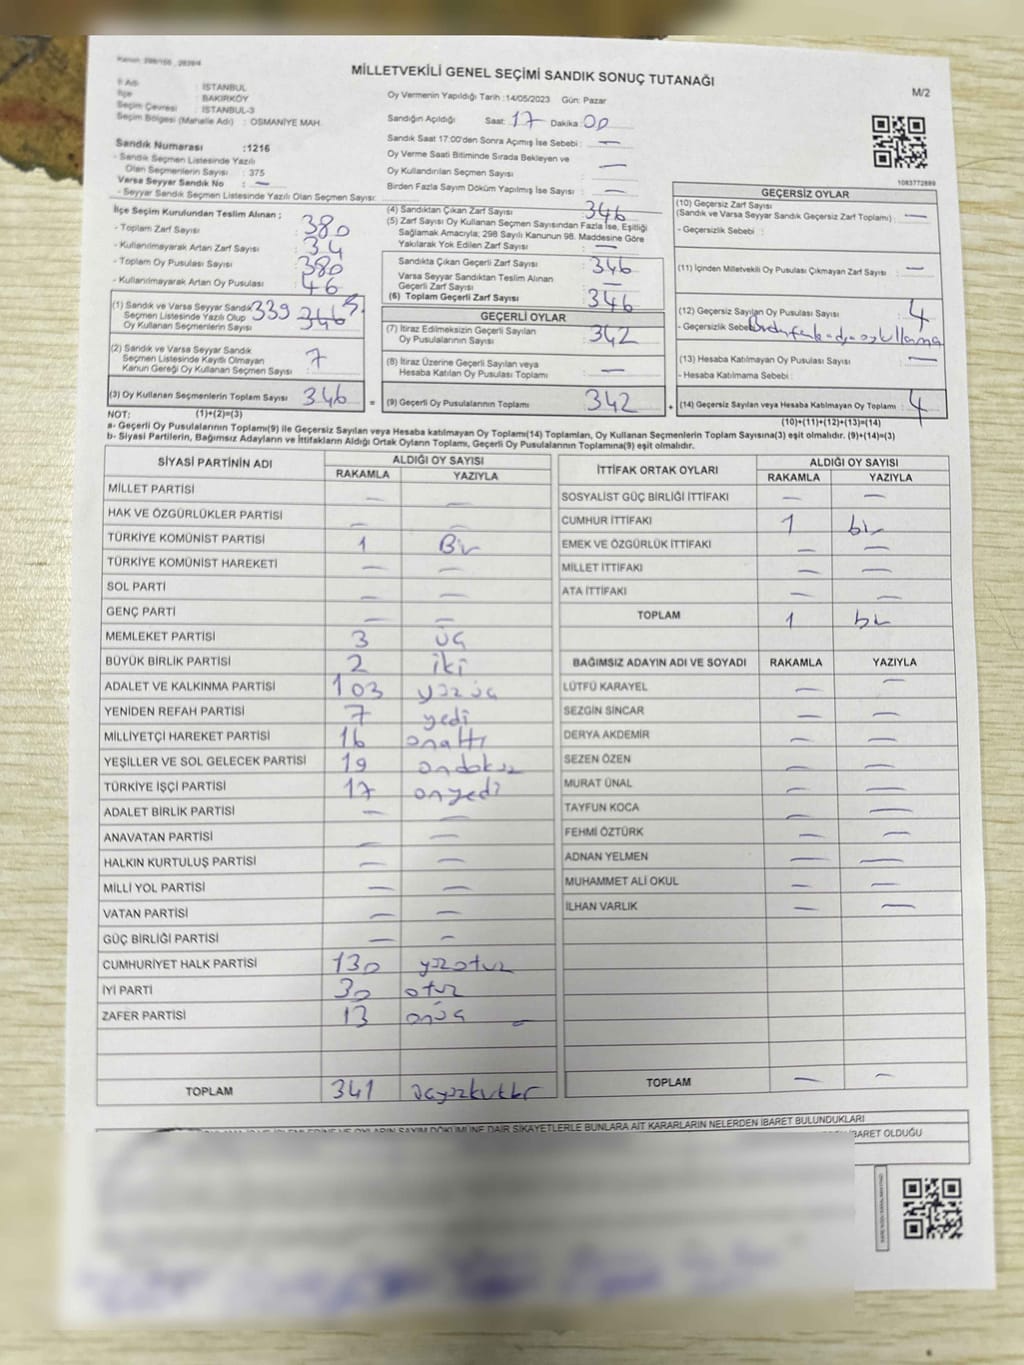 Kanun: 298/105 , 2839/4
MİLLETVEKİLİ GENEL SEÇİMİ SANDIK SONUÇ TUTANAĞI
M/2
İl Adı : İSTANBUL
İlçe : BAKIRKÖY
Seçim Çevresi : İSTANBUL-3
Seçim Bölgesi (Mahalle Adı) : OSMANİYE MAH.
Oy Vermenin Yapıldığı Tarih :14/05/2023 Gün: Pazar
Sandığın Açıldığı Saat: 17 Dakika 00
Sandık Saat 17:00'den Sonra Açılmış İse Sebebi : —
Oy Verme Saati Bitiminde Sırada Bekleyen ve
Oy Kullandırılan Seçmen Sayısı : —
Birden Fazla Sayım Döküm Yapılmış İse Sayısı : —
Sandık Numarası :1216
- Sandık Seçmen Listesinde Yazılı
Olan Seçmenlerin Sayısı : 375
Varsa Seyyar Sandık No : —
- Seyyar Sandık Seçmen Listesinde Yazılı Olan Seçmen Sayısı:
1083772889
İlçe Seçim Kurulundan Teslim Alınan ;
- Toplam Zarf Sayısı : 380
- Kullanılmayarak Artan Zarf Sayısı : 34
- Toplam Oy Pusulası Sayısı : 380
- Kullanılmayarak Artan Oy Pusulası : 46
(1) Sandık ve Varsa Seyyar Sandık
Seçmen Listesinde Yazılı Olup 339 346
Oy Kullanan Seçmenlerin Sayısı
(2) Sandık ve Varsa Seyyar Sandık
Seçmen Listesinde Kayıtlı Olmayan 7
Kanun Gereği Oy Kullanan Seçmen Sayısı :
(3) Oy Kullanan Seçmenlerin Toplam Sayısı : 346 =
(4) Sandıktan Çıkan Zarf Sayısı : 346
(5) Zarf Sayısı Oy Kullanan Seçmen Sayısından Fazla İse, Eşitliği
Sağlamak Amacıyla; 298 Sayılı Kanunun 98. Maddesine Göre
Yakılarak Yok Edilen Zarf Sayısı : —
Sandıkta Çıkan Geçerli Zarf Sayısı : 346
Varsa Seyyar Sandıktan Teslim Alınan
Geçerli Zarf Sayısı : —
(6) Toplam Geçerli Zarf Sayısı : 346
GEÇERLİ OYLAR
(7) İtiraz Edilmeksizin Geçerli Sayılan
Oy Pusulalarının Sayısı : 342
(8) İtiraz Üzerine Geçerli Sayılan veya
Hesaba Katılan Oy Pusulası Toplamı : —
(9) Geçerli Oy Pusulalarının Toplamı : 342 +
GEÇERSİZ OYLAR
(10) Geçersiz Zarf Sayısı
(Sandık ve Varsa Seyyar Sandık Geçersiz Zarf Toplamı) : —
- Geçersizlik Sebebi :
(11) İçinden Milletvekili Oy Pusulası Çıkmayan Zarf Sayısı : —
(12) Geçersiz Sayılan Oy Pusulası Sayısı : 4
- Geçersizlik Sebebi
(13) Hesaba Katılmayan Oy Pusulası Sayısı : —
- Hesaba Katılmama Sebebi :
(14) Geçersiz Sayılan veya Hesaba Katılmayan Oy Toplamı : 4
NOT: (1)+(2)=(3) (10)+(11)+(12)+(13)=(14)
a- Geçerli Oy Pusulalarının Toplamı(9) ile Geçersiz Sayılan veya Hesaba katılmayan Oy Toplamı(14) Toplamları, Oy Kullanan Seçmenlerin Toplam Sayısına(3) eşit olmalıdır. (9)+(14)=(3)
b- Siyasi Partilerin, Bağımsız Adayların ve İttifakların Aldığı Ortak Oyların Toplamı, Geçerli Oy Pusulalarının Toplamına(9) eşit olmalıdır.
SİYASİ PARTİNİN ADI ALDIĞI OY SAYISI
RAKAMLA YAZIYLA
MİLLET PARTİSİ — —
HAK VE ÖZGÜRLÜKLER PARTİSİ — —
TÜRKİYE KOMÜNİST PARTİSİ 1 Bir
TÜRKİYE KOMÜNİST HAREKETİ — —
SOL PARTİ — —
GENÇ PARTİ — —
MEMLEKET PARTİSİ 3 üç
BÜYÜK BİRLİK PARTİSİ 2 iki
ADALET VE KALKINMA PARTİSİ 103 yüzüç
YENİDEN REFAH PARTİSİ 7 yedi
MİLLİYETÇİ HAREKET PARTİSİ 16 onaltı
YEŞİLLER VE SOL GELECEK PARTİSİ 19 ondokuz
TÜRKİYE İŞÇİ PARTİSİ 17 onyedi
ADALET BİRLİK PARTİSİ — —
ANAVATAN PARTİSİ — —
HALKIN KURTULUŞ PARTİSİ — —
MİLLİ YOL PARTİSİ — —
VATAN PARTİSİ — —
GÜÇ BİRLİĞİ PARTİSİ — —
CUMHURİYET HALK PARTİSİ 130 yüzotuz
İYİ PARTİ 30 otuz
ZAFER PARTİSİ 13 onüç
TOPLAM 341
İTTİFAK ORTAK OYLARI ALDIĞI OY SAYISI
RAKAMLA YAZIYLA
SOSYALİST GÜÇ BİRLİĞİ İTTİFAKI — —
CUMHUR İTTİFAKI 1 bir
EMEK VE ÖZGÜRLÜK İTTİFAKI — —
MİLLET İTTİFAKI — —
ATA İTTİFAKI — —
TOPLAM 1 bir
BAĞIMSIZ ADAYIN ADI VE SOYADI RAKAMLA YAZIYLA
LÜTFÜ KARAYEL — —
SEZGİN SİNCAR — —
DERYA AKDEMİR — —
SEZEN ÖZEN — —
MURAT ÜNAL — —
TAYFUN KOCA — —
FEHMİ ÖZTÜRK — —
ADNAN YELMEN — —
MUHAMMET ALİ OKUL — —
İLHAN VARLIK — —
TOPLAM — —
OYLARIN SAYIM DÖKÜMÜNE DAİR ŞİKAYETLERLE BUNLARA AİT KARARLARIN NELERDEN İBARET BULUNDUKLARI
İBARET OLDUĞU